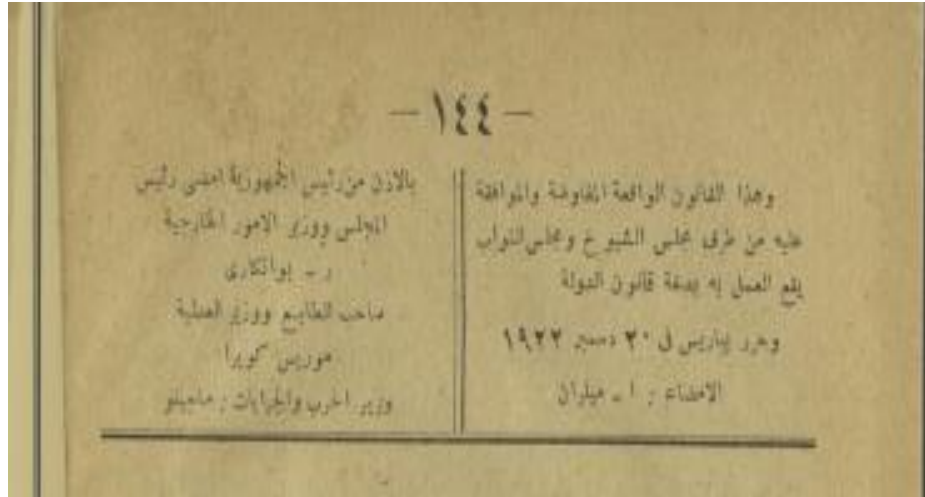 — ١٤٤ —
وهذا القانون الواقعة المفاوضة والموافقة
عليه من طرف مجلس الشيوخ ومجلس النواب
يقع العمل به بصفة قانون الدولة
وحرر بباريس فى ٢٠ دسمبر ١٩٢٢
الامضاء : ا ـ ميلران
بالاذن من رئيس الجمهورية امضى رئيس
المجلس ووزير الامور الخارجية
ر ـ بوانكارى
صاحب الطابع ووزير العدلية
موريس كوبرا
وزير الحرب والجرايات : ماجينو